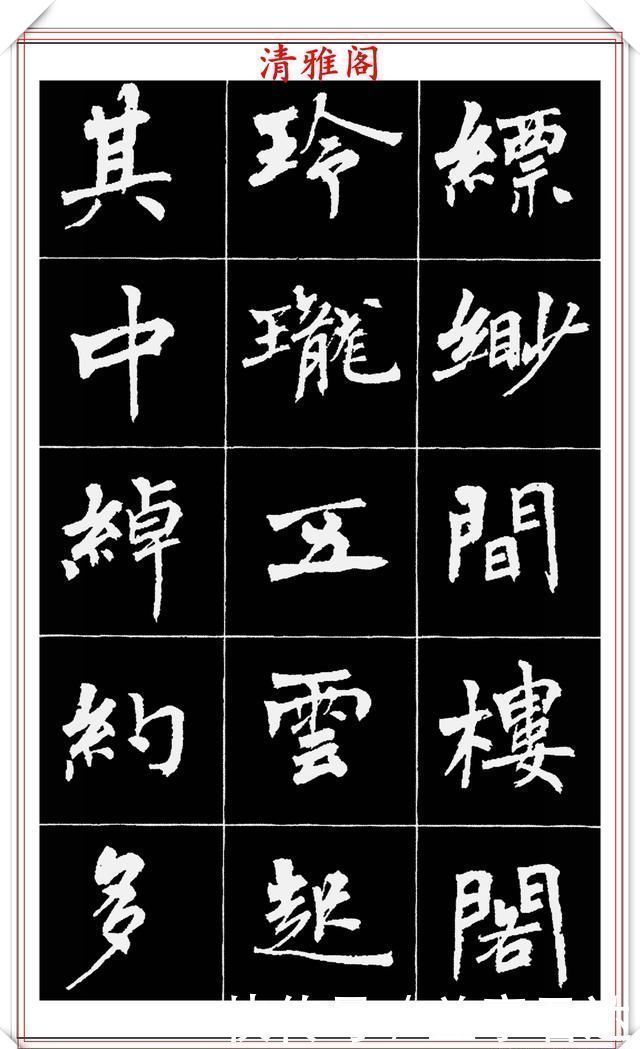 清雅阁
縹緲間樓閣
玲瓏五雲起
其中綽約多